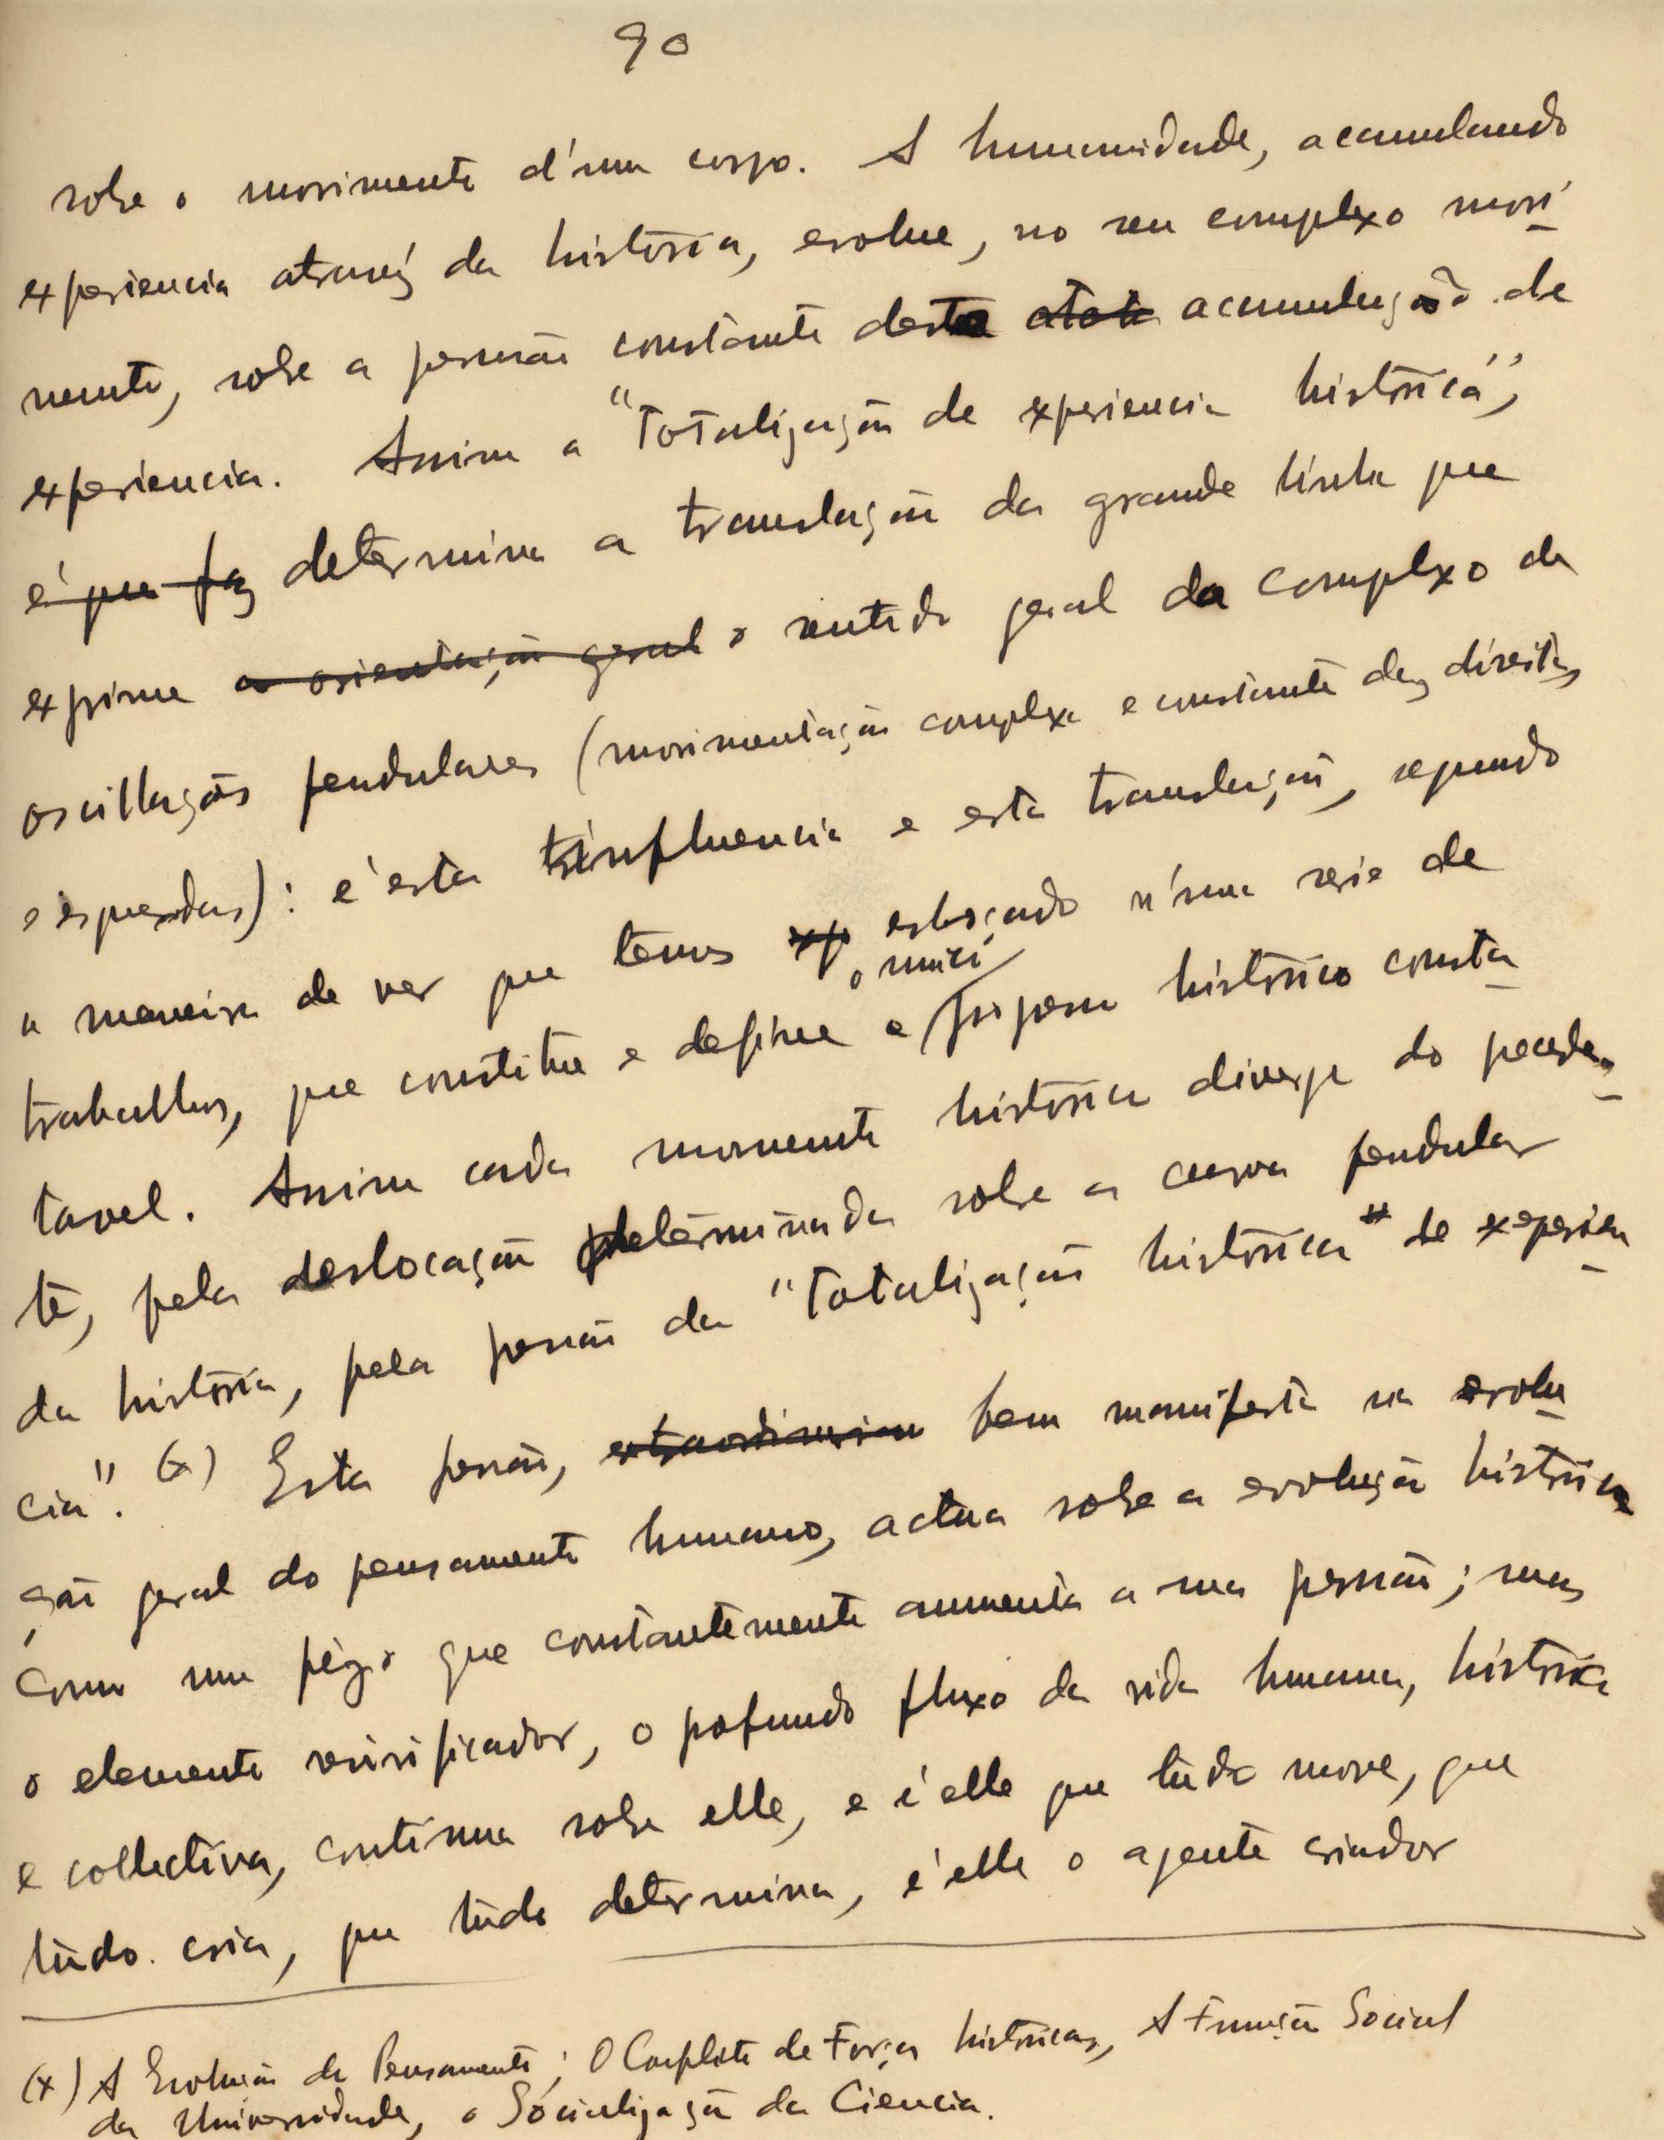 90
sobre o movimento d'um corpo. A humanidade, acumulando
experiencia atravéz da história, evolue, no seu complexo movi
mento, sobre a pressão constante desta acumulação de
experiencia. Assim a "Totalização de experiencia histórica",
é que faz determina a translação da grande linha que
exprime a orientação geral o sentido geral da complexo de
oscillações pendulares (movimentação complexa e constante dez direitas
e esquerdas): é esta influencia e esta translação, segundo
a maneira de ver que temos esboçado n'uma serie de
o unici
trabalhos, que constitue e define e progresso histórico consta
tavel. Assim cada momento histórico diverge do preceden
te, pela deslocação determinada sobre a curva pendular
da história, pela pressão da "Totalização histórica" de experien
cia". (x) Esta pressão, extraordinaria bem manifesta na evolu
ção geral do pensamento humano, actua sobre a evolução histórica
como um pêzo que constantemente aumenta a sua pressão; mas
o elemento vivificador, o profundo fluxo da vida humana, histórica
e collectiva, continua sobre elle, e é elle que túdo move, que
túdo cria, que túdo determina, é elle o agente criador
(x) A Evolução do Pensamento; O Conflito de Forças historicas, A Função Social
da Universidade, a Socialização da Ciencia.